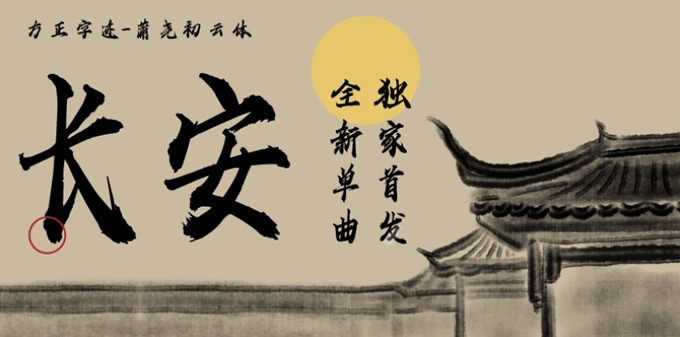 方正字迹-蕭尧初云体
长安
独家首发
全新单曲